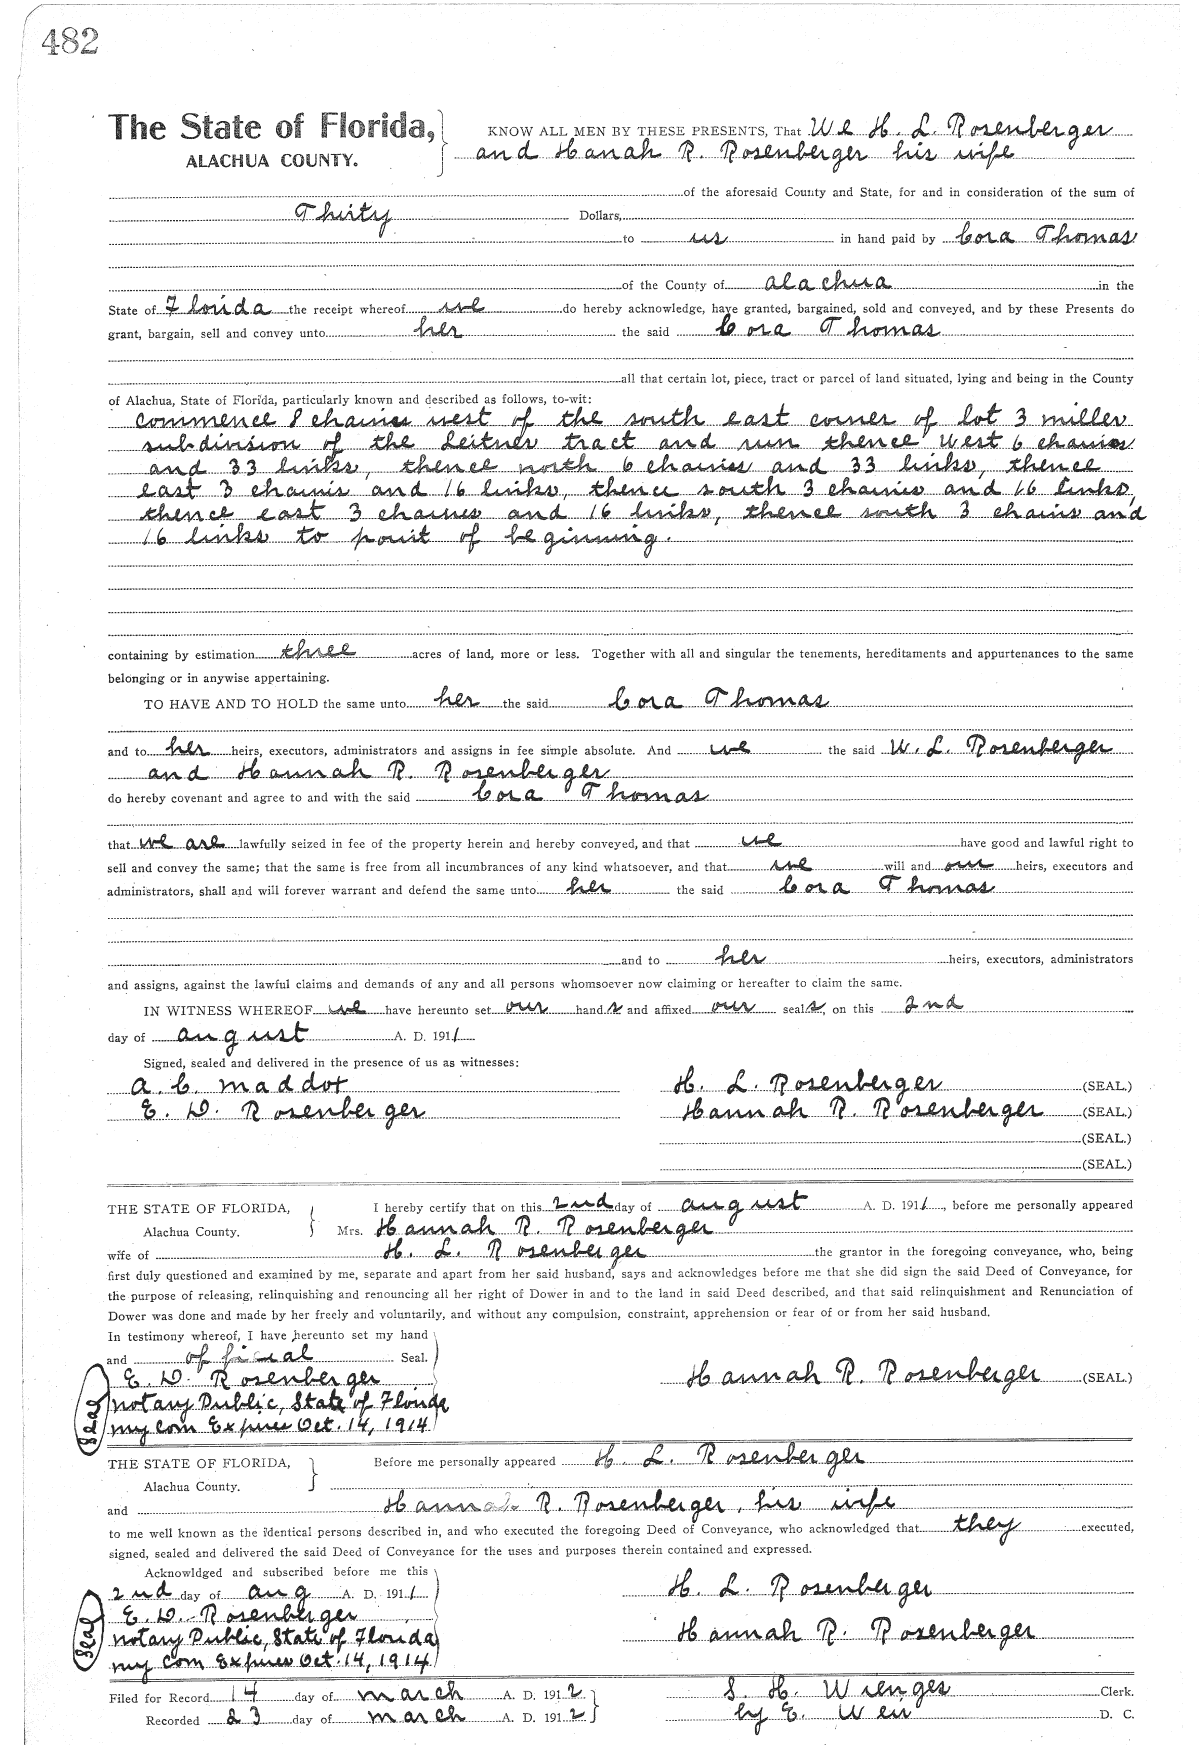 482
The State of Florida,
ALACHUA COUNTY.
KNOW ALL MEN BY THESE PRESENTS, That We H. L. Rosenberger
and Hanah R. Rosenberger his wife
of the aforesaid County and State, for and in consideration of the sum of
Thirty Dollars,
to us in hand paid by Cora Thomas
of the County of Alachua in the
State of Florida the receipt whereof we do hereby acknowledge, have granted, bargained, sold and conveyed, and by these Presents do
grant, bargain, sell and convey unto her the said Cora Thomas
all that certain lot, piece, tract or parcel of land situated, lying and being in the County
of Alachua, State of Florida, particularly known and described as follows, to-wit:
Commence 8 chains west of the south east corner of lot 3 miller
subdivision of the Leitner tract and run thence West 6 chains
and 33 links, thence north 6 chains and 33 links, thence
east 3 chains and 16 links, thence south 3 chains and 16 links,
thence east 3 chains and 16 links, thence south 3 chains and
16 links to point of beginning.
containing by estimation three acres of land, more or less. Together with all and singular the tenements, hereditaments and appurtenances to the same
belonging or in anywise appertaining.
TO HAVE AND TO HOLD the same unto her the said Cora Thomas
and to her heirs, executors, administrators and assigns in fee simple absolute. And we the said W. L. Rosenberger
and Hannah R. Rosenberger
do hereby covenant and agree to and with the said Cora Thomas
that we are lawfully seized in fee of the property herein and hereby conveyed, and that we have good and lawful right to
sell and convey the same; that the same is free from all incumbrances of any kind whatsoever, and that we will and our heirs, executors and
administrators, shall and will forever warrant and defend the same unto her the said Cora Thomas
and to her heirs, executors, administrators
and assigns, against the lawful claims and demands of any and all persons whomsoever now claiming or hereafter to claim the same.
IN WITNESS WHEREOF we have hereunto set our hands and affixed our seals, on this 2nd
day of august A. D. 1911
Signed, sealed and delivered in the presence of us as witnesses:
A. C. Maddox H. L. Rosenberger (SEAL.)
E. D. Rosenberger Hannah R. Rosenberger (SEAL.)
(SEAL.)
(SEAL.)
THE STATE OF FLORIDA, I hereby certify that on this 2nd day of august A. D. 1911, before me personally appeared
Alachua County. Mrs. Hannah R. Rosenberger
wife of H. L. Rosenberger the grantor in the foregoing conveyance, who, being
first duly questioned and examined by me, separate and apart from her said husband, says and acknowledges before me that she did sign the said Deed of Conveyance, for
the purpose of releasing, relinquishing and renouncing all her right of Dower in and to the land in said Deed described, and that said relinquishment and Renunciation of
Dower was done and made by her freely and voluntarily, and without any compulsion, constraint, apprehension or fear of or from her said husband.
In testimony whereof, I have hereunto set my hand
and official Seal.
E. D. Rosenberger Hannah R. Rosenberger (SEAL.)
Seal
notary Public, State of Florida
my Com Expires Oct. 14, 1914
THE STATE OF FLORIDA, Before me personally appeared H. L. Rosenberger
Alachua County.
and Hannah R. Rosenberger, his wife
to me well known as the identical persons described in, and who executed the foregoing Deed of Conveyance, who acknowledged that they executed,
signed, sealed and delivered the said Deed of Conveyance for the uses and purposes therein contained and expressed.
Acknowldged and subscribed before me this
2nd day of Aug A. D. 1911 H. L. Rosenberger
E. D. Rosenberger
Seal
notary Public, State of Florida Hannah R. Rosenberger
my Com Expires Oct. 14, 1914
Filed for Record 14 day of march A. D. 1912 S. H. Wienges Clerk.
Recorded 23 day of march A. D. 1912 by E. D. C.